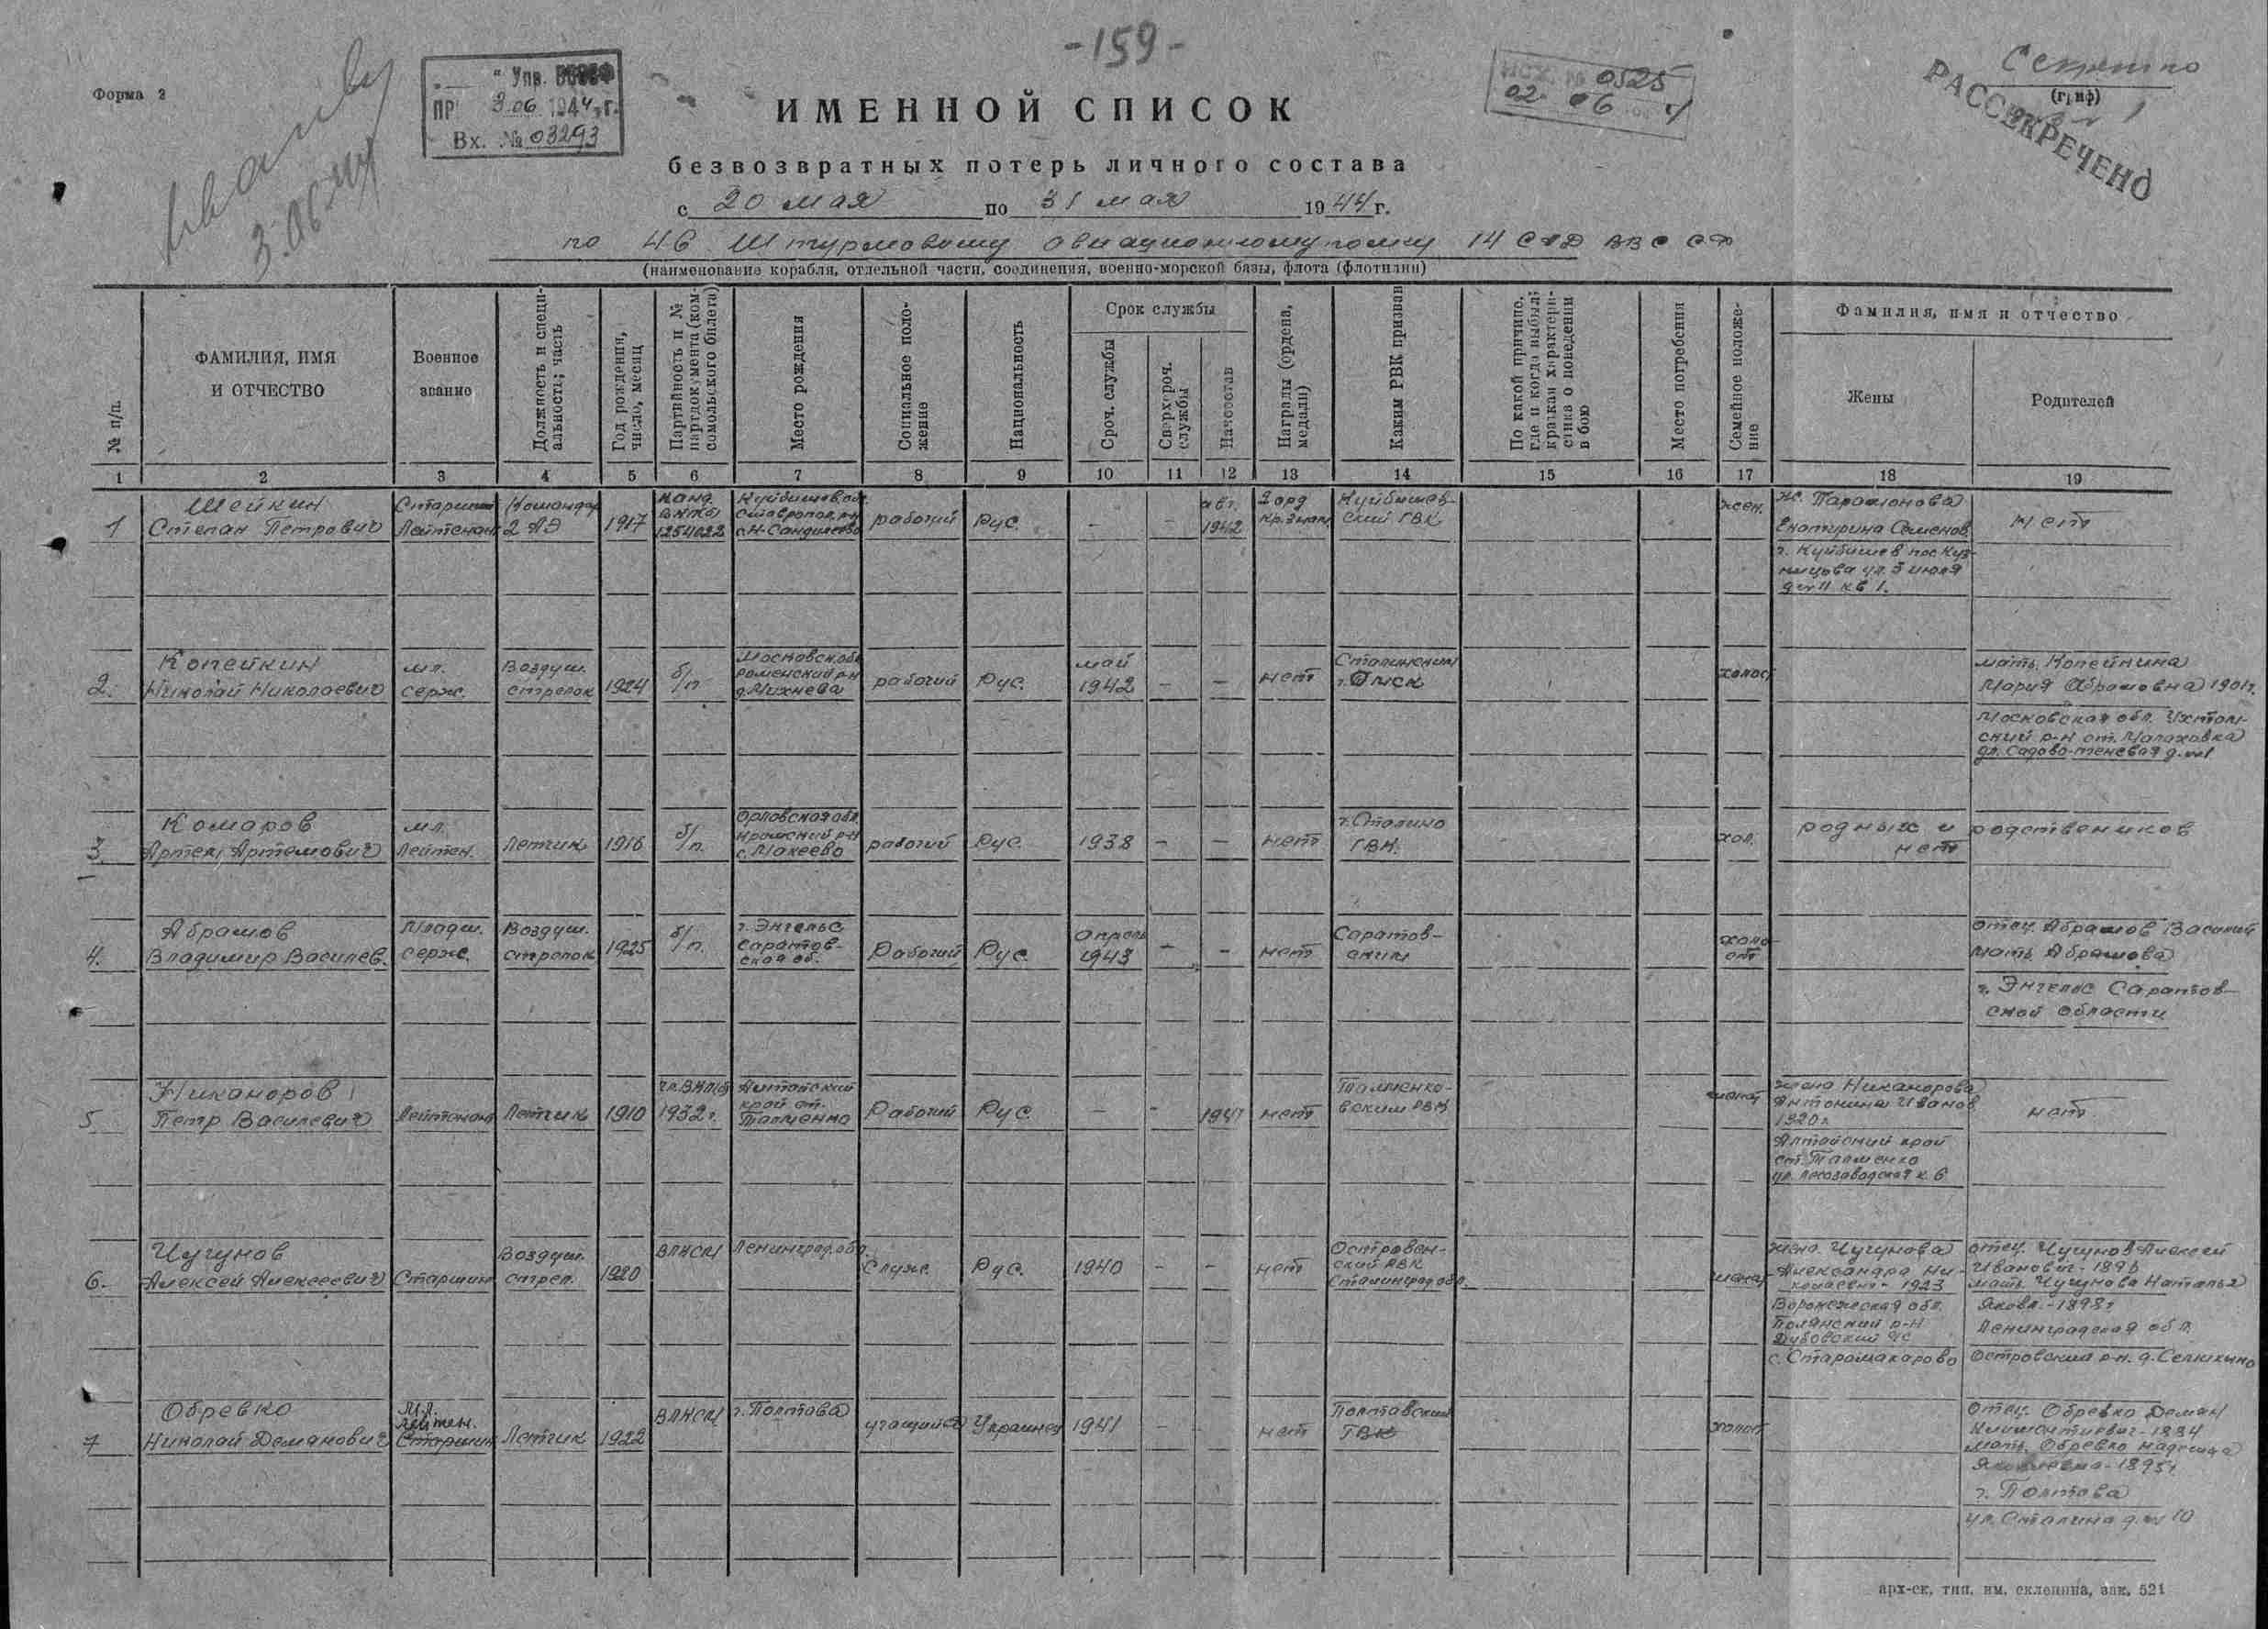 -159-
Форма 2
3.06.44
" Упр. ВВС СФ
ПР 3.06 1944 г.
Вх. № 03293
ИСХ. № 0525
02 06 4
Секретно
(гриф)
РАССЕКРЕЧЕНО
ИМЕННОЙ СПИСОК
безвозвратных потерь личного состава
с 20 мая по 31 мая 1944 г.
по 46 Штурмовому авиационному полку 14 САД ВВС СФ
(наименование корабля, отдельной части, соединения, военно-морской базы, флота (флотилии)
№ п/п.
ФАМИЛИЯ, ИМЯ
И ОТЧЕСТВО
Военное
звание
Должность и специ-
альность; часть
Год рождения,
число, месяц
Партийность и №
партдокумента (ком-
сомольского билета)
Место рождения
Социальное поло-
жение
Национальность
Срок службы
Сроч. службы
Сверхсроч.
службы
Начсостав
Награды (ордена,
медали)
Каким РВК призван
По какой причине,
где и когда выбыл;
краткая характери-
стика о поведении
в бою
Место погребения
Семейное положе-
ние
Фамилия, имя и отчество
Жены
Родителей
1 2 3 4 5 6 7 8 9 10 11 12 13 14 15 16 17 18 19
1
Шейкин
Степан Петрович
Старший
Лейтенант
Командир
2 АЭ
1917
Канд.
ВКП(б)
1254022
Куйбышев. обл.
Ставропол. р-н
с. Н-Сандилеево
рабочий
Рус.
-
-
авг.
1942
2 орд.
Кр. Знам.
Куйбышев-
ский ГВК
жен.
ж. Парамонова
Екатерина Семенов.
г. Куйбышев пос Куз-
нецова ул. 5 июля
д № 11 кв 1.
нет
2.
Копейкин
Николай Николаевич
мл.
серж.
Воздуш.
стрелок
1924
б/п
Московск. обл
Раменский р-н
д. Михнева
рабочий
Рус.
май
1942
-
-
нет
Сталинский
холост
мать. Копейкина
Мария Абрамовна 1901 г.
Московская обл. Ухтом-
ский р-н ст. Малаховка
ул. Садово-теневая д. № 1
3.
Комаров
Артем Артемович
мл.
Лейтен.
Летчик
1916
б/п.
Орловская обл.
Кромский р-н
с. Макеево
рабочий
Рус.
1938
-
-
нет
г. Сталино
ГВК.
хол.
родных и родствеников
нет
4.
Абрамов
Владимир Василев.
Младш.
серж.
Воздуш.
стрелок
1925
б/п.
г. Энгельс
Саратов-
ская об.
Рабочий
Рус.
апрель
1943
-
-
нет
Саратов-
ским
холо-
ст
отец. Абрамов Василий
мать. Абрамова
г. Энгельс Саратов-
ской области
5
Никаноров
Петр Василевич
Лейтенант
Летчик
1910
чл. ВКП(б)
1932 г.
Алтайский
край ст.
Тальменка
Рабочий
Рус.
-
-
1941
нет
Тальменко-
вским РВК
женат
жена Никанорова
Антонина Иванов
1920 г.
Алтайский край
ст. Тальменка
ул. Лесозаводская к. 6
нет
6.
Чугунов
Алексей Алексеевич
Старшин
Воздуш.
стрел.
1920
ВЛКСМ
Ленинград. обл.
Служ.
Рус.
1940
-
-
нет
Островен-
ский РВК
Сталинград обл.
женат
жена. Чугунова
Александра Ни-
колаевна - 1923
Воронежская обл.
Полянский р-н
Дубовский с/с
с. Старомакарово
отец. Чугунов Алексей
Иванович - 1896
мать. Чугунова Наталья
Яковл. - 1898 г
Ленинградская обл.
Островский р-н. д. Селихьно
7
Обревко
Николай Деманович
мл.
лейтен.
Старшин
Летчик
1922
ВЛКСМ
г. Полтава
учащийся
Украинец
1941
-
нет
Полтавский
ГВК
холост
отец. Обревко Деман
Климентиевич - 1884
мать. Обревко Надежда
Яковлевна - 1895 г
г. Полтава
ул. Сталина д. № 10
арх-ск, тип. им. склепина, зак. 521